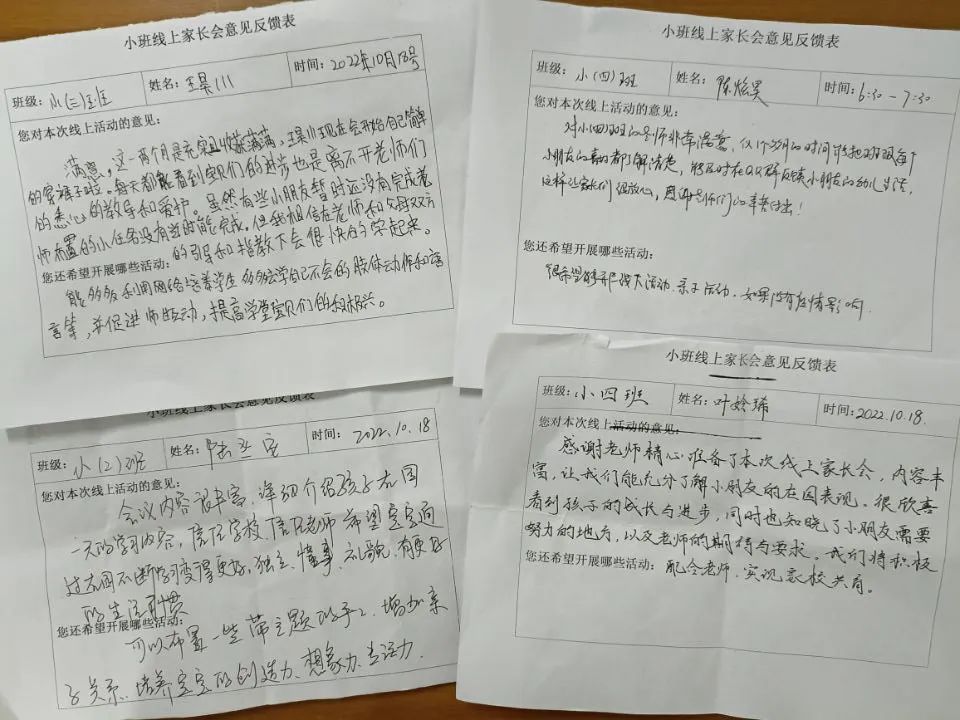 小班线上家长会意见反馈表
班级：小(三)班
姓名：王昊川
时间：2022年10月18号
您对本次线上活动的意见：
满意，这一两个月是充实且收获满满，王昊川现在会开始自己简单
的穿裤子啦。每天都能看到宝贝们的进步也是离不开老师们
的悉心的教导和爱护。虽然有些小朋友暂时还没有完成老
师布置的小任务没有当时能完成。但我相信在老师和父母双方
的引导和指教下会很快的学起来。
您还希望开展哪些活动：
能多多利用网络培养学生多多去学自己不会的肢体动作和语
言等，并促进师生互动，提高学堂宝贝们的积极兴。
小班线上家长会意见反馈表
班级：小(四)班
姓名：陈炫昊
时间：6:30-7:30
您对本次线上活动的意见：
对小四班的老师非常满意，仅1个多月的时间就把班级每个
小朋友的喜好都了解清楚，能及时在QQ群反馈小朋友的幼儿生活，
这样让家长们很放心，感谢老师们的辛苦付出！
您还希望开展哪些活动：
很希望能够开展户外大活动、亲子活动，如果没有疫情影响
小班线上家长会意见反馈表
班级：小(2)班
姓名：
时间：2022.10.18
您对本次线上活动的意见：
会议内容很丰富，详细介绍孩子在园
一天的学习内容，信任学校、信任老师，希望宝宝通
过在园不断学习变得更好，独立、懂事、礼貌，有更好
的生活习惯
您还希望开展哪些活动：
可以布置一些带主题的手工，增加亲
子关系、培养宝宝的创造力、想象力、专注力
小班线上家长会意见反馈表
班级：小四班
姓名：叶姈瑀
时间：2022.10.18.
您对本次线上活动的意见：
感谢老师精心准备了本次线上家长会，内容丰
富，让我们能充分了解小朋友的在园表现。很欣喜
看到孩子的成长与进步，同时也知晓了小朋友需要
努力的地方，以及老师的期待与要求。我们将积极
您还希望开展哪些活动：配合老师，实现家校共育。